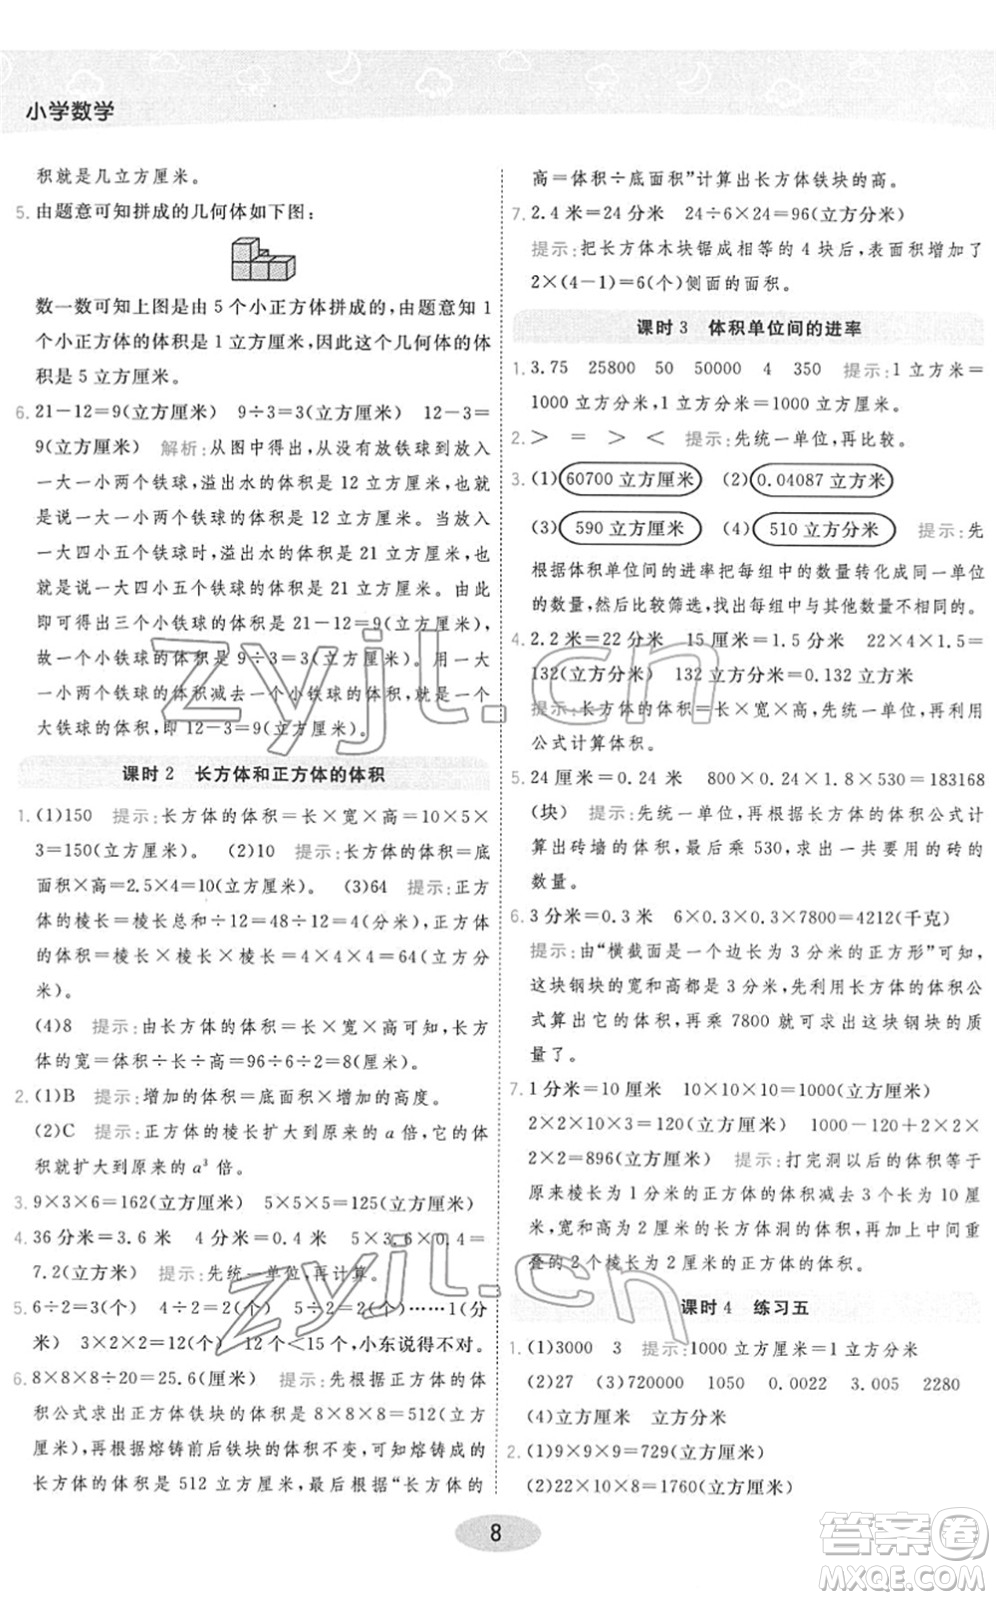 小学数学
积就是几立方厘米。
5. 由题意可知拼成的几何体如下图:
数一数可知上图是由 5 个小正方体拼成的,由题意知 1
个小正方体的体积是 1 立方厘米,因此这个几何体的体
积是 5 立方厘米。
6. 21－12＝9(立方厘米) 9÷3＝3(立方厘米) 12－3＝
9(立方厘米) 解析:从图中得出,从没有放铁球到放入
一大一小两个铁球,溢出水的体积是 12 立方厘米,也就
是说一大一小两个铁球的体积是 12 立方厘米。当放入
一大四小五个铁球时,溢出水的体积是 21 立方厘米,也
就是说一大四小五个铁球的体积是 21 立方厘米。由此
即可得出三个小铁球的体积是 21－12＝9(立方厘米),
故一个小铁球的体积是 9÷3＝3(立方厘米)。用一大
一小两个铁球的体积减去一个小铁球的体积,就是一个
大铁球的体积,即 12－3＝9(立方厘米)。
课时 2 长方体和正方体的体积
1. (1)150 提示:长方体的体积＝长×宽×高＝10×5×
3＝150(立方厘米)。 (2)10 提示:长方体的体积＝底
面积×高＝2.5×4＝10(立方厘米)。 (3)64 提示:正方
体的棱长＝棱长总和÷12＝48÷12＝4(分米),正方体
的体积＝棱长×棱长×棱长＝4×4×4＝64(立方分
米)。
(4)8 提示:由长方体的体积＝长×宽×高可知,长方体的
宽＝体积÷长÷高＝96÷6÷2＝8(厘米)。
2. (1)B 提示:增加的体积＝底面积×增加的高度。
(2)C 提示:正方体的棱长扩大到原来的 a 倍,它的体
积就扩大到原来的 a³ 倍。
3. 9×3×6＝162(立方厘米) 5×5×5＝125(立方厘米)
4. 36 分米＝3.6 米 4 分米＝0.4 米 5×3.6×0.4＝
7.2(立方米) 提示:先统一单位,再计算。
5. 6÷2＝3(个) 4÷2＝2(个) 5÷2＝2(个)……1(分
米) 3×2×2＝12(个) 12 个＜15 个,小东说得不对。
6. 8×8×8÷20＝25.6(厘米) 提示:先根据正方体的体
积公式求出正方体铁块的体积是 8×8×8＝512(立方厘
米),再根据熔铸前后铁块的体积不变,可知熔铸成的
长方体的体积是 512 立方厘米,最后根据“长方体的
高＝体积÷底面积”计算出长方体铁块的高。
7. 2.4 米＝24 分米 24÷6×24＝96(立方分米)
提示:把长方体木块锯成相等的 4 块后,表面积增加了
2×(4－1)＝6(个)侧面的面积。
课时 3 体积单位间的进率
1. 3.75 25800 50 50000 4 350 提示:1 立方米＝
1000 立方分米,1 立方分米＝1000 立方厘米。
2. ＞ ＝ ＞ ＜ 提示:先统一单位,再比较。
3. (1) 60700 立方厘米 (2) 0.04087 立方米
(3) 590 立方厘米 (4) 510 立方分米 提示:先
根据体积单位间的进率把每组中的数量转化成同一单位
的数量,然后比较筛选,找出每组中与其他数量不相同的。
4. 2.2 米＝22 分米 15 厘米＝1.5 分米 22×4×1.5＝
132(立方分米) 132 立方分米＝0.132 立方米
提示:长方体的体积＝长×宽×高,先统一单位,再利用
公式计算体积。
5. 24 厘米＝0.24 米 800×0.24×1.8×530＝183168
(块) 提示:先统一单位,再根据长方体的体积公式计
算出砖墙的体积,最后乘 530,求出一共要用的砖的
数量。
6. 3 分米＝0.3 米 6×0.3×0.3×7800＝4212(千克)
提示:由“横截面是一个边长为 3 分米的正方形”可知,
这块钢块的宽和高都是 3 分米,先利用长方体的体积公
式算出它的体积,再乘 7800 就可求出这块钢块的质
量了。
7. 1 分米＝10 厘米 10×10×10＝1000(立方厘米)
2×2×10×3＝120(立方厘米) 1000－120＋2×2×
2×2＝896(立方厘米) 提示:打完洞以后的体积等于
原来棱长为 1 分米的正方体的体积减去 3 个长为 10 厘
米,宽和高为 2 厘米的长方体洞的体积,再加上中间重
叠的 2 个棱长为 2 厘米的正方体的体积。
课时 4 练习五
1. (1)3000 3 提示:1000 立方厘米＝1 立方分米
(2)27 (3)720000 1050 0.0022 3.005 2280
(4)立方厘米 立方分米
2. (1)9×9×9＝729(立方厘米)
(2)22×10×8＝1760(立方厘米)
8
zyjl.cn
zyjl.cn
答案圈
MXQE.COM